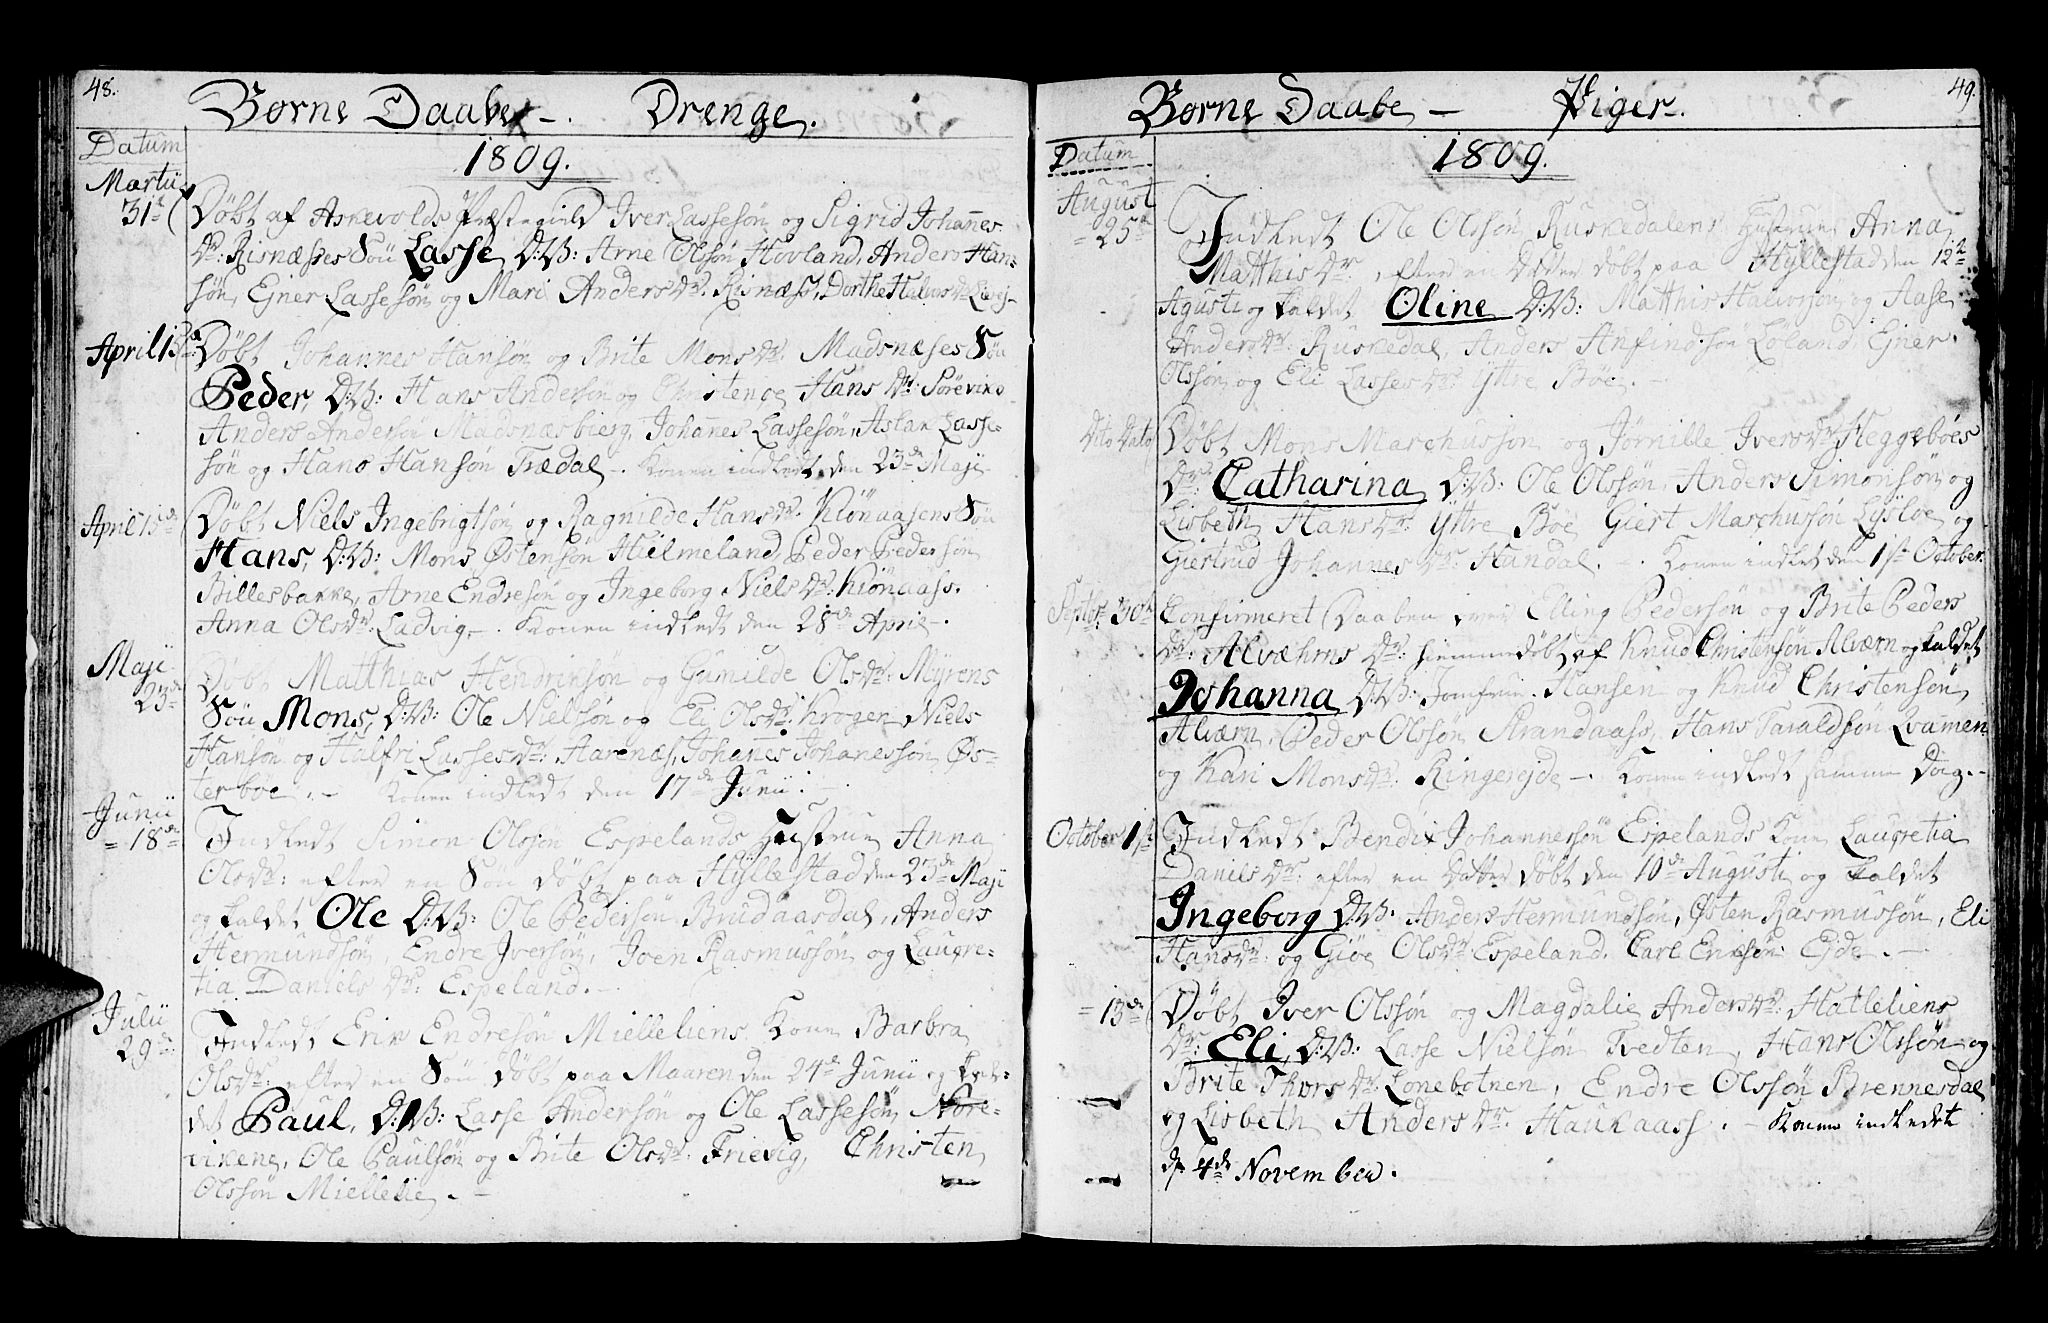 48.
Børne Daabe – . Drenge.
Datum
1809.
Martii
31te
Døbt af Askevolds Præstegield Iver Lassesøn og Sigrid Johannes
Dr: Risnæsses Søn Lasse D:V: Arne Olssøn Hovland, Anders Han-
søn, Ejner Lassesøn og Mari Andersdr. Risnæss, Dorthe Halvorsdr
April 15de
Døbt Johannes Hansøn og Brite Monsdr. Madsnæses Søn
Peder, D:V: Hans Andersøn og Christence Hans Dr: Sørevins
Anders Andersøn Madsnæsbierg, Johañes Lassesøn, Aslak Lasse-
søn og Hans Hansøn Trædal – . Konen indledt den 23de Maji
April 15de
Døbt Niels Ingebrigtsøn og Ragnilde Hansdr. Kiönaasens Søn
Hans, D:V: Mons Østensøn Hielmeland, Peder Pedersøn
Billesbakke, Arne Endresøn og Ingeborg Nielsdr: Kiönaass.
Anna Olsdr: Ladvig – . Konen indledt den 28de April – .
Maji
23de
Døbt Matthias Henrichsøn og Gunilde Olsdr: Myrens
Søn Mons, D:V: Ole Nielsøn og Eli Olsdr: Krogen, Niels
Hansøn og Halfri Lassesdr: Aarenæs, Johañes Johanessøn Øs-
terbøe . – Konen indledt den 17de Junii . –
Junii
= 18de
Indledt Simon Olssøn Espelands Hustrue Anna
Olsdr: efter en Søn døbt paa Hyllestad den 23de Maji
og kaldet Ole D:V: Ole Pedersøn Bruidaasdal, Anders
Hermundsøn, Endre Iversøn, Joen Rasmussøn og Laugre-
tia Daniels Dr: Espeland. –
Julii
29de
Indledt Erik Endresøn Mielleliens Kone Barbra
Olsdr. efter en Søn døbt paa Maaren den 24de Junii og kal-
det Paul, D:V: Lasse Andersøn og Ole Lassesøn Nore-
vikene, Ole Paulsøn og Brite Olsdr. Frievig, Christen
Olssøn Miellelie . –
49.
Børne Daabe – Piger.
Datum
1809.
August
= 25de
Indledt Ole Olssøn Ruskedalens Hustrue Anna
Matthisdr. efter en Datter døbt paa Hyllestad den 12te
Agusti og kaldet Oline D:V: Matthis Halvorssøn og Aase
Andersdr: Ruskedal, Anders Anfindsøn Løland, Ejner
Olssøn og Eli Lassesdr: Yttre Bøe.
Dito Dato
Døbt Mons Marchussøn og Jørnille Iversdr: Heggebøes
Dr: Catharina, D:V: Ole Olssøn, Anders Simonsøn og
Lisbeth Hansdr: Yttre Bøe Giert Marchussøn Lysløe og
Giertrud Johannesdr: Handal . – . Konen indledt den 1ste October.
Septbr 30te
Confirmeret Daaben over Elling Pedersøn og Brite Peders
Dr: Alvæhrns Dr: hiemmedøbt af Knud Christensøn Alværn og kaldet
Johanna D:V: Jomfrue Hansen og Knud Christensøn
Alværn, Peder Olssøn Strandaass, Hans Taraldsøn Qvamen
og Kari Monsdr: Ringereide – . Konen indledt samme Dag. –
October 1ste
Indledt Bendix Johannessøn Espelands Kone Laugretia
Danielsdr: efter en Datter døbt den 10de Augusti og kaldet
Ingeborg D:V: Anders Hermundsøn, Østen Rasmussøn, Eli
Hansdr: og Giøe Olsdr: Espeland. Carl Ensøn Ejde . –
= 13de
Døbt Iver Olssøn og Magdalie Andersdr. Hatleliens
Dr: Eli, D:V: Lasse Nielsøn Tvedten, Hans Olssøn og
Brite Thorsdr: Lonebotnen, Endre Olssøn Brennesdal
og Lisbeth Andersdr. Haukaass . – Konen indledet
d. 4de November.